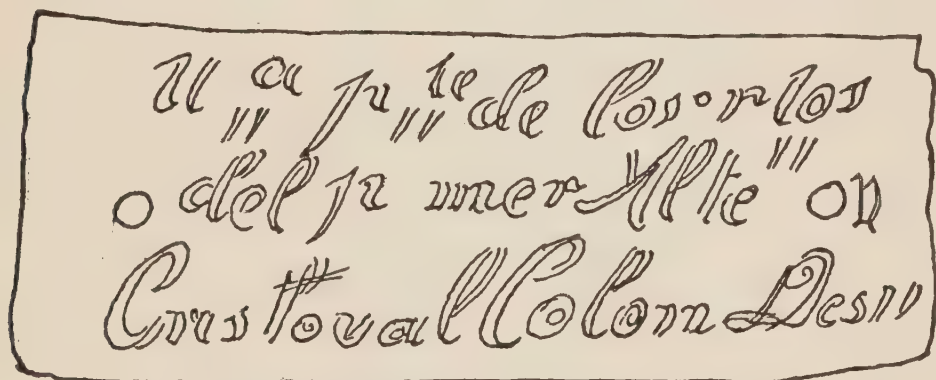 U a p te de los rtos
del primer Alte D
Cristoval Colon Des